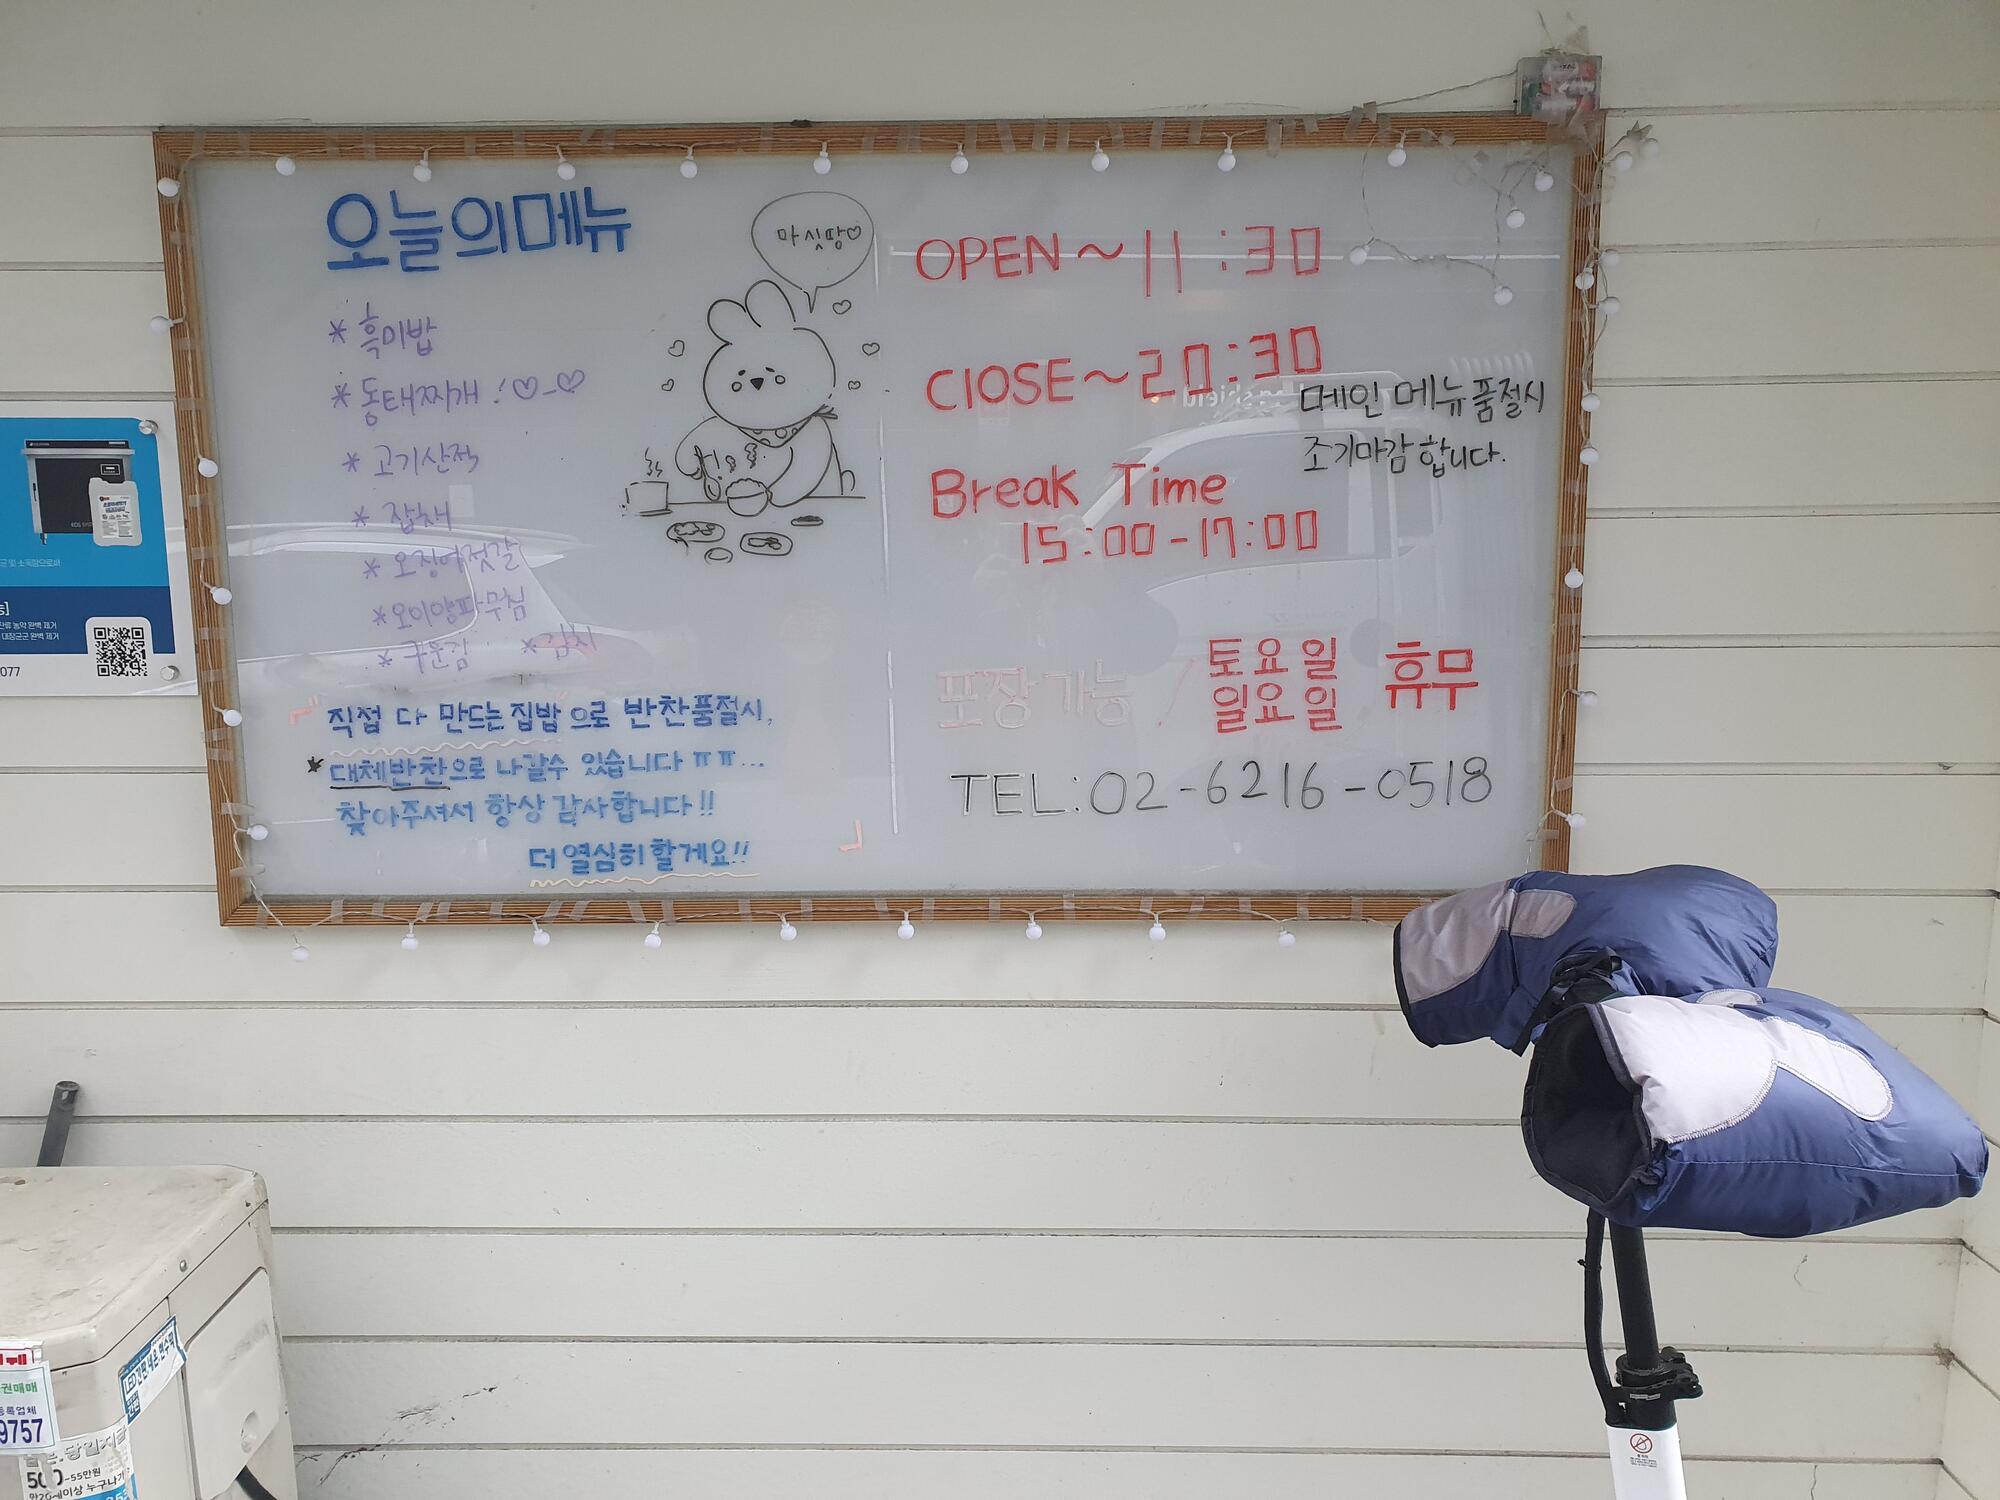 오늘의메뉴
* 흑미밥
* 동태찌개 !♡-♡
* 고기산적
* 잡채
* 오징어젓갈
* 오이양파무침
* 구운김 * 김치
『직접 다 만드는 집밥"으로 반찬품절시,
* 대체반찬으로 나갈수 있습니다 ㅠㅠ...
찾아주셔서 항상 감사합니다!!
더 열심히 할게요!!
』
마싯땅♡
OPEN~11:30
ClOSE~20:30
메인 메뉴품절시
조기마감합니다.
Break Time
15:00-17:00
포장가능 / 토요일 휴무
일요일
TEL:02-6216-0518
077
9757
500-55만원